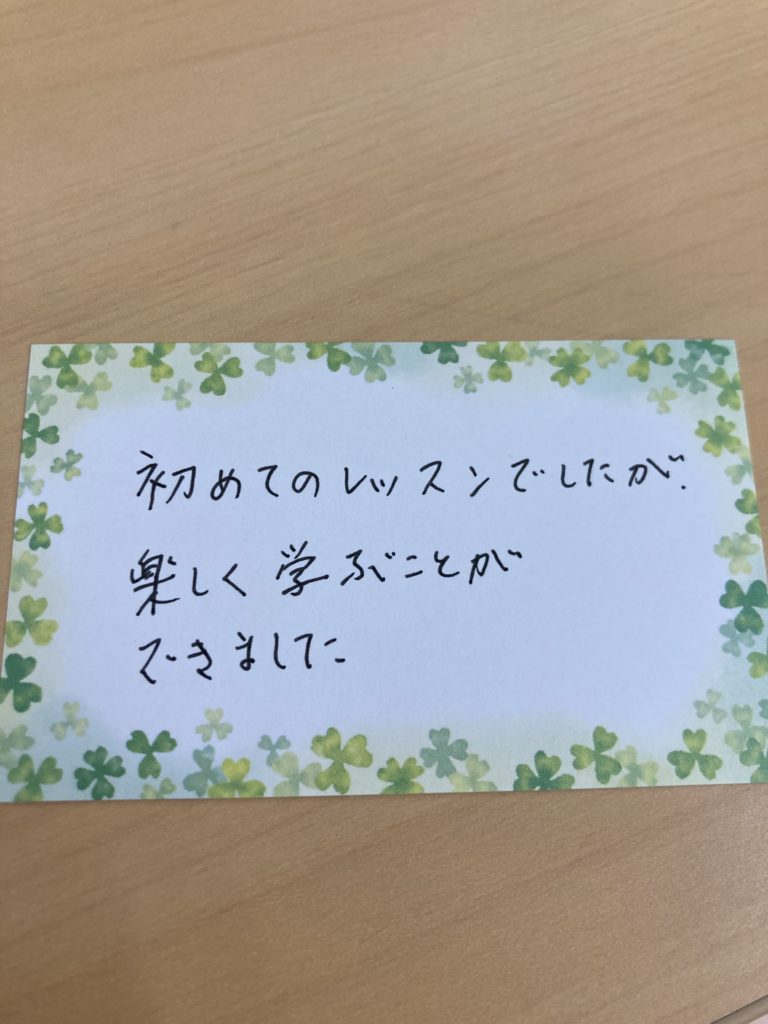 初めてのレッスンでしたが、
楽しく学ぶことが
できました